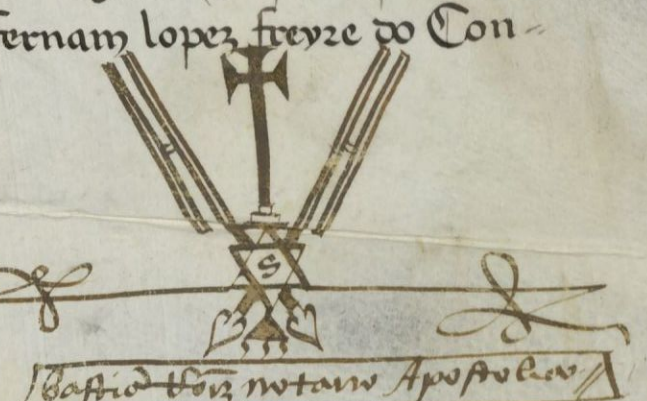 fernam lopez freyre do Con-
S
bastiã Roīz notario Apostolico